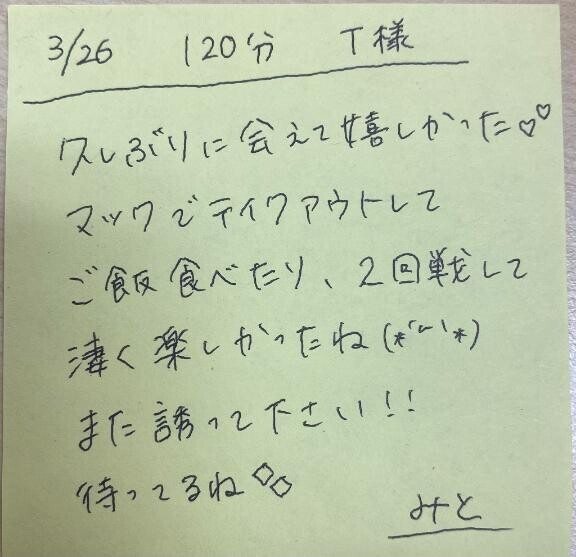 3/26 120分 T様
久しぶりに会えて嬉しかった♡♡
マックでテイクアウトして
ご飯食べたり、2回戦して
凄く楽しかったね(*´˘`*)
また誘って下さい!!
待ってるね◇◇
みと